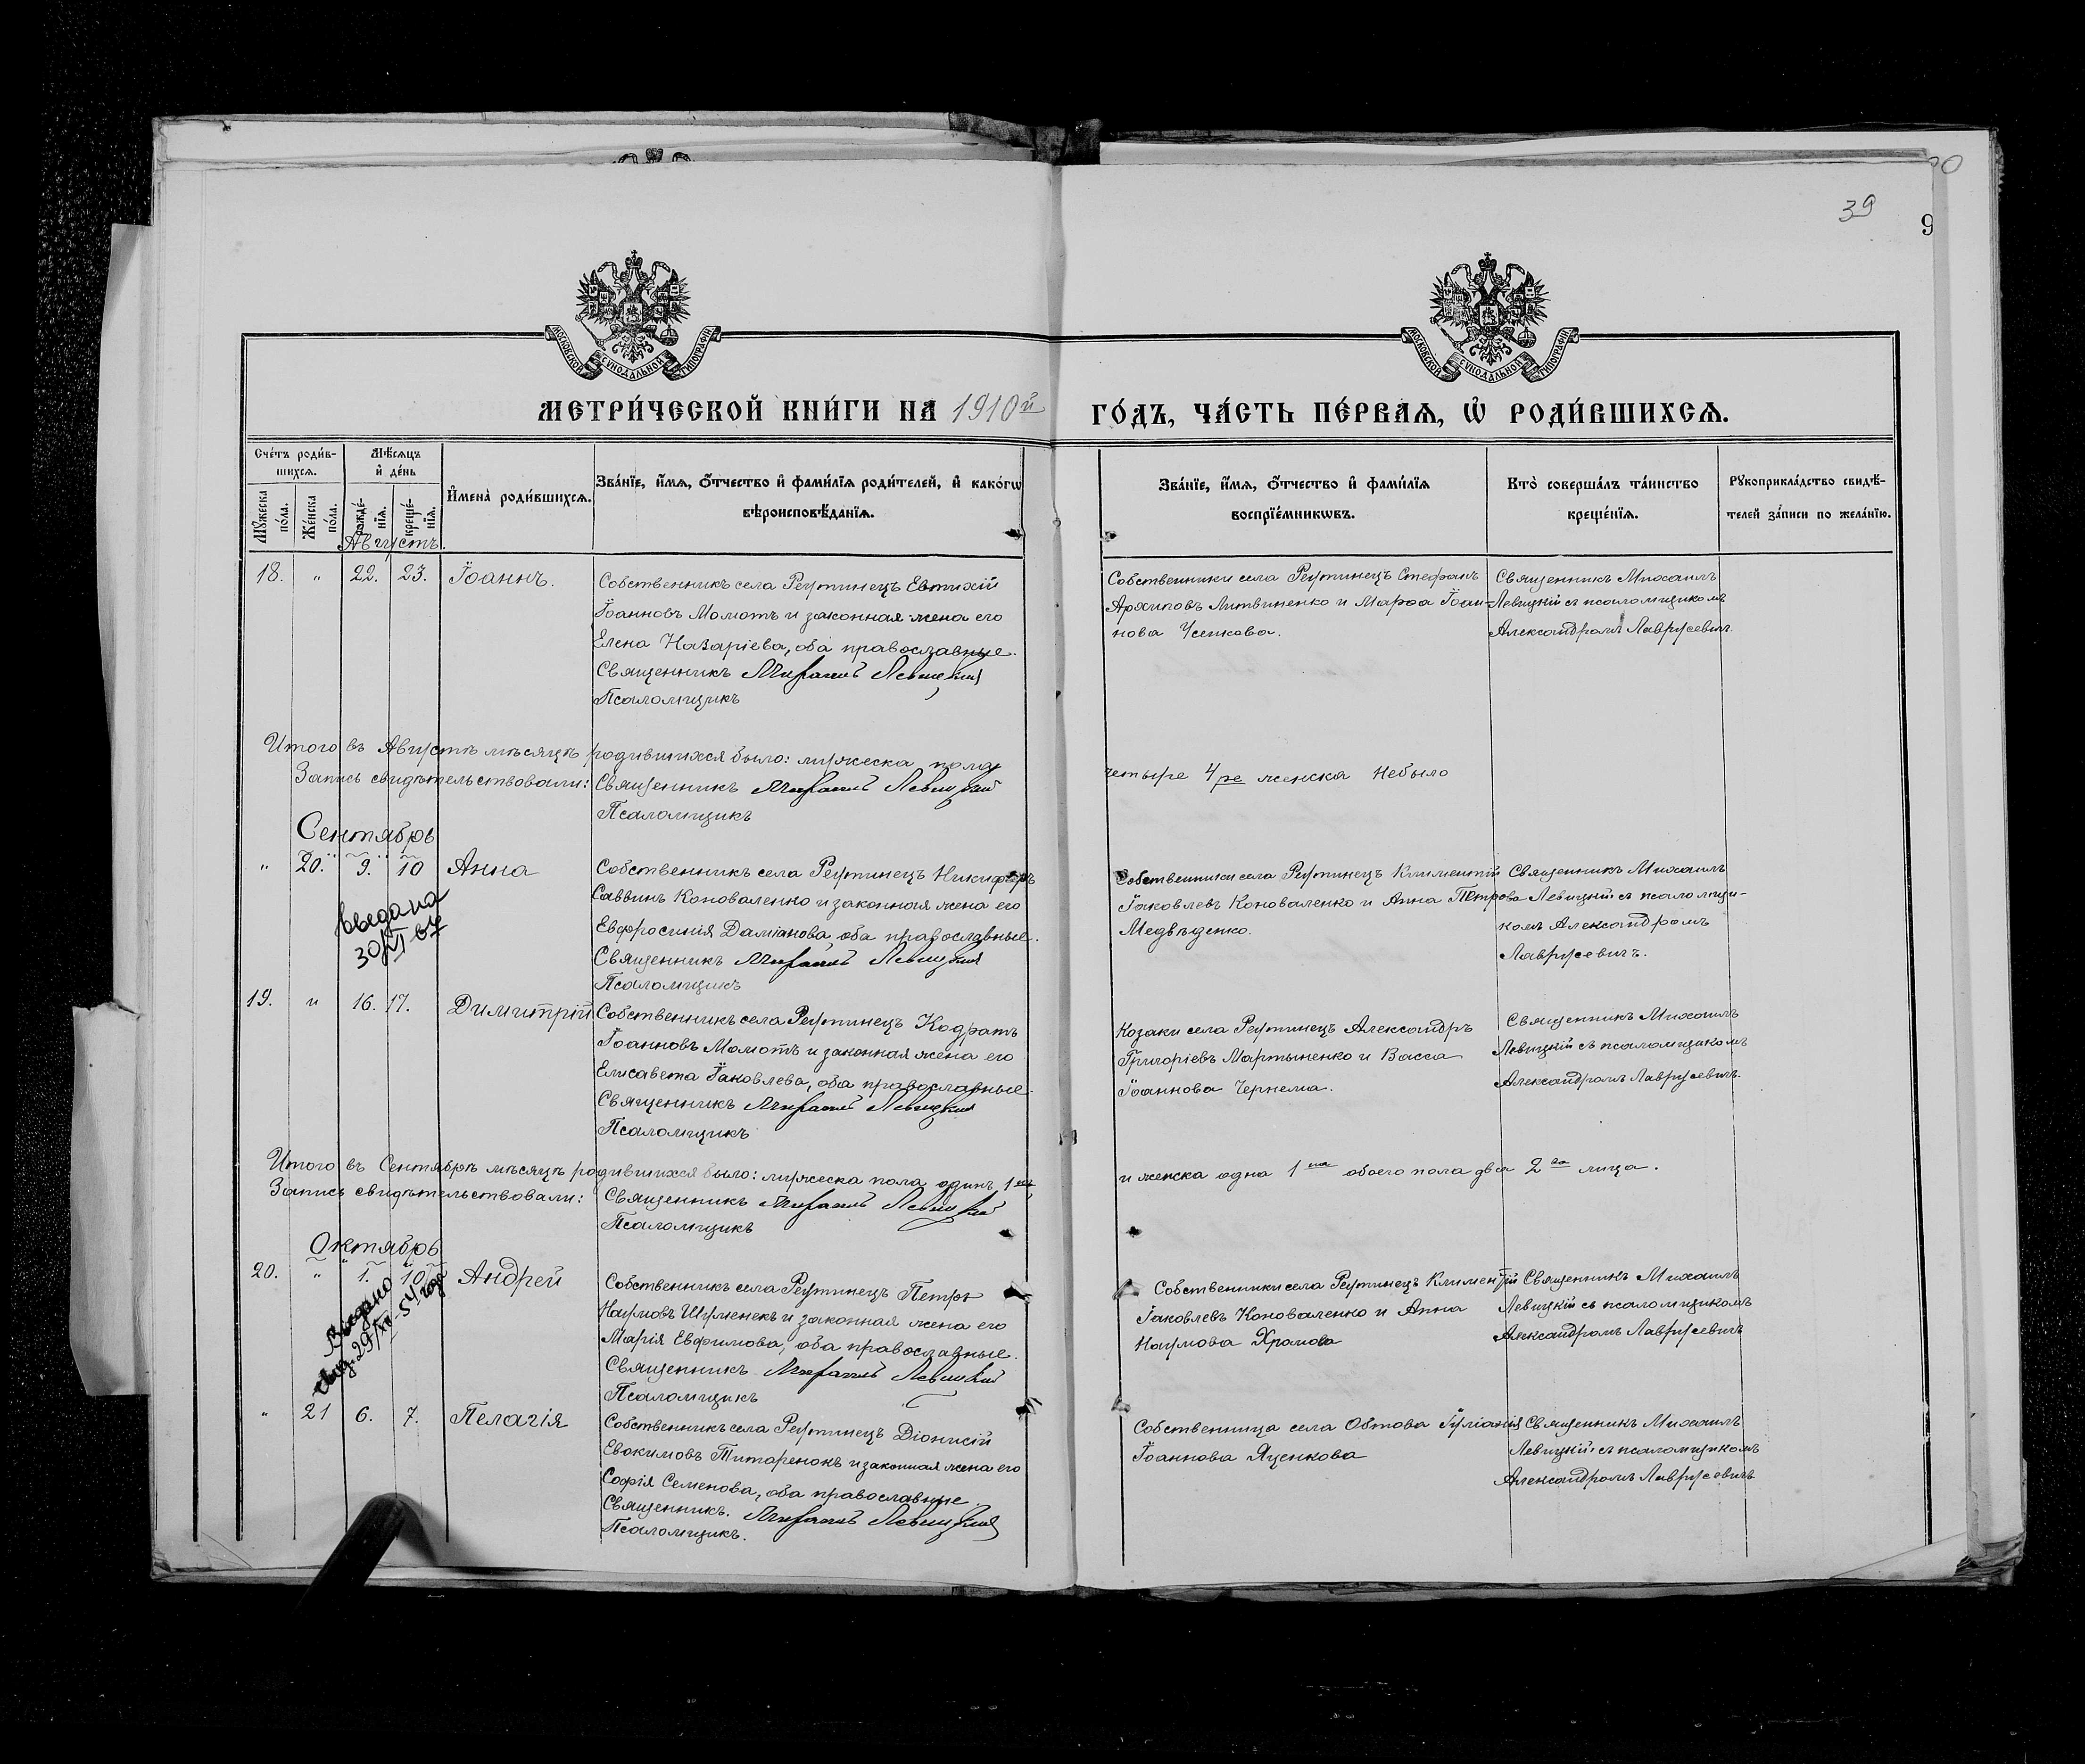 39
9
МОСКОВСКОЙ СѴНОДАЛЬНОЙ ТИПОГРАФІИ
МОСКОВСКОЙ СѴНОДАЛЬНОЙ ТИПОГРАФІИ
МЕТРИ́ЧЕСКОЙ КНИ́ГИ НА 1910й ГО́ДЪ, ЧА́СТЬ ПЕ́РВАѦ, Ѡ҆ РОДИ́ВШИХСѦ.
Сче́тъ роди́в-
шихсѧ.
Мꙋ́жеска по́ла.
Же́нска по́ла.
Мѣ́сѧцъ и҆ де́нь
рожде́-нїѧ.
креще́-нїѧ.
И҆мена̀ роди́вшихсѧ.
Зва́нїе, и҆́мѧ, ѻ҆́тчество и҆ фами́лїѧ роди́телей, и҆ како́гѡ
вѣроисповѣ́данїѧ.
Зва́нїе, и҆́мѧ, ѻ҆́тчество и҆ фами́лїѧ
воспрїе́мникѡвъ.
Кто̀ соверша́лъ та́инство
креще́нїѧ.
Рꙋкоприкла́дство свидѣ́-
телей за́писи по жела́нїю.
Августъ.
18. " 22. 23. Іоаннъ.
Собственникъ села Реутинецъ Евтихій
Іоанновъ Момотъ и законная жена его
Елена Назаріева, оба православные.
Священникъ Михаилъ Левицкій
Псаломщикъ
Собственники села Реутинецъ Стефанъ
Архиповъ Литвиненко и Марѳа Іоан-
нова Усикова.
Священникъ Михаилъ
Левицкій съ псаломщикомъ
Александромъ Лаврусевичъ
Итого въ Августѣ мѣсяцѣ родившихся было: мужеска пола четыре 4ре женска небыло
Записъ свидѣтельствовали: Священникъ Михаилъ Левицкій
Псаломщикъ
Сентябрь
" 20. 9. 10 Анна
Выдана
30/VI 67
Собственникъ села Реутинецъ Никифоръ
Саввинъ Коноваленко и законная жена его
Евфросинія Даміанова оба православные.
Священникъ Михаилъ Левицкій
Псаломщикъ
Собственники села Реутинецъ Климентій
Іаковлевъ Коноваленко и Анна Петрова
Медвѣденко.
Священникъ Михаилъ
Левицкій съ псаломщи-
комъ Александромъ
Лаврусевичъ.
19. " 16. 17. Димитрій
Собственникъ села Реутинецъ Кодратъ
Іоанновъ Момотъ и законная жена его
Елисавета Іаковлева, оба православные.
Священникъ Михаилъ Левицкій
Псаломщикъ
Козаки села Реутинецъ Александръ
Григоріевъ Мартыненко и Васса
Іоаннова Чернема.
Священникъ Михаилъ
Левицкій съ псаломщикомъ
Александромъ Лаврусевичъ.
Итого въ Сентябрѣ мѣсяцѣ родившихся было: мужеска пола одинъ 1инъ и женска одна 1на обоего пола два 2ва лица.
Записъ свидѣтельствовали: Священникъ Михаилъ Левицкій
Псаломщикъ
Октябрь
20. " 1. 10 Андрей
Выдано
свид. 29/XII-54 года
Собственникъ села Реутинецъ Петръ
Наумовъ Шуменекъ и законная жена его
Марія Евфимова, оба православные.
Священникъ Михаилъ Левицкій
Псаломщикъ
Собственники села Реутинецъ Климентій
Іаковлевъ Коноваленко и Анна
Наумова Храмова
Священникъ Михаилъ
Левицкій съ псаломщикомъ
Александромъ Лаврусевичъ
" 21 6. 7. Пелагія
Собственникъ села Реутинецъ Діонисій
Евокимовъ Титаренокъ и законная жена его
Софія Семенова, оба православные.
Священникъ. Михаилъ Левицкій
Псаломщикъ.
Собственница села Обтова Іуліанія
Іоаннова Яценкова
Священникъ Михаилъ
Левицкій съ псаломщикомъ
Александромъ Лаврусевичъ